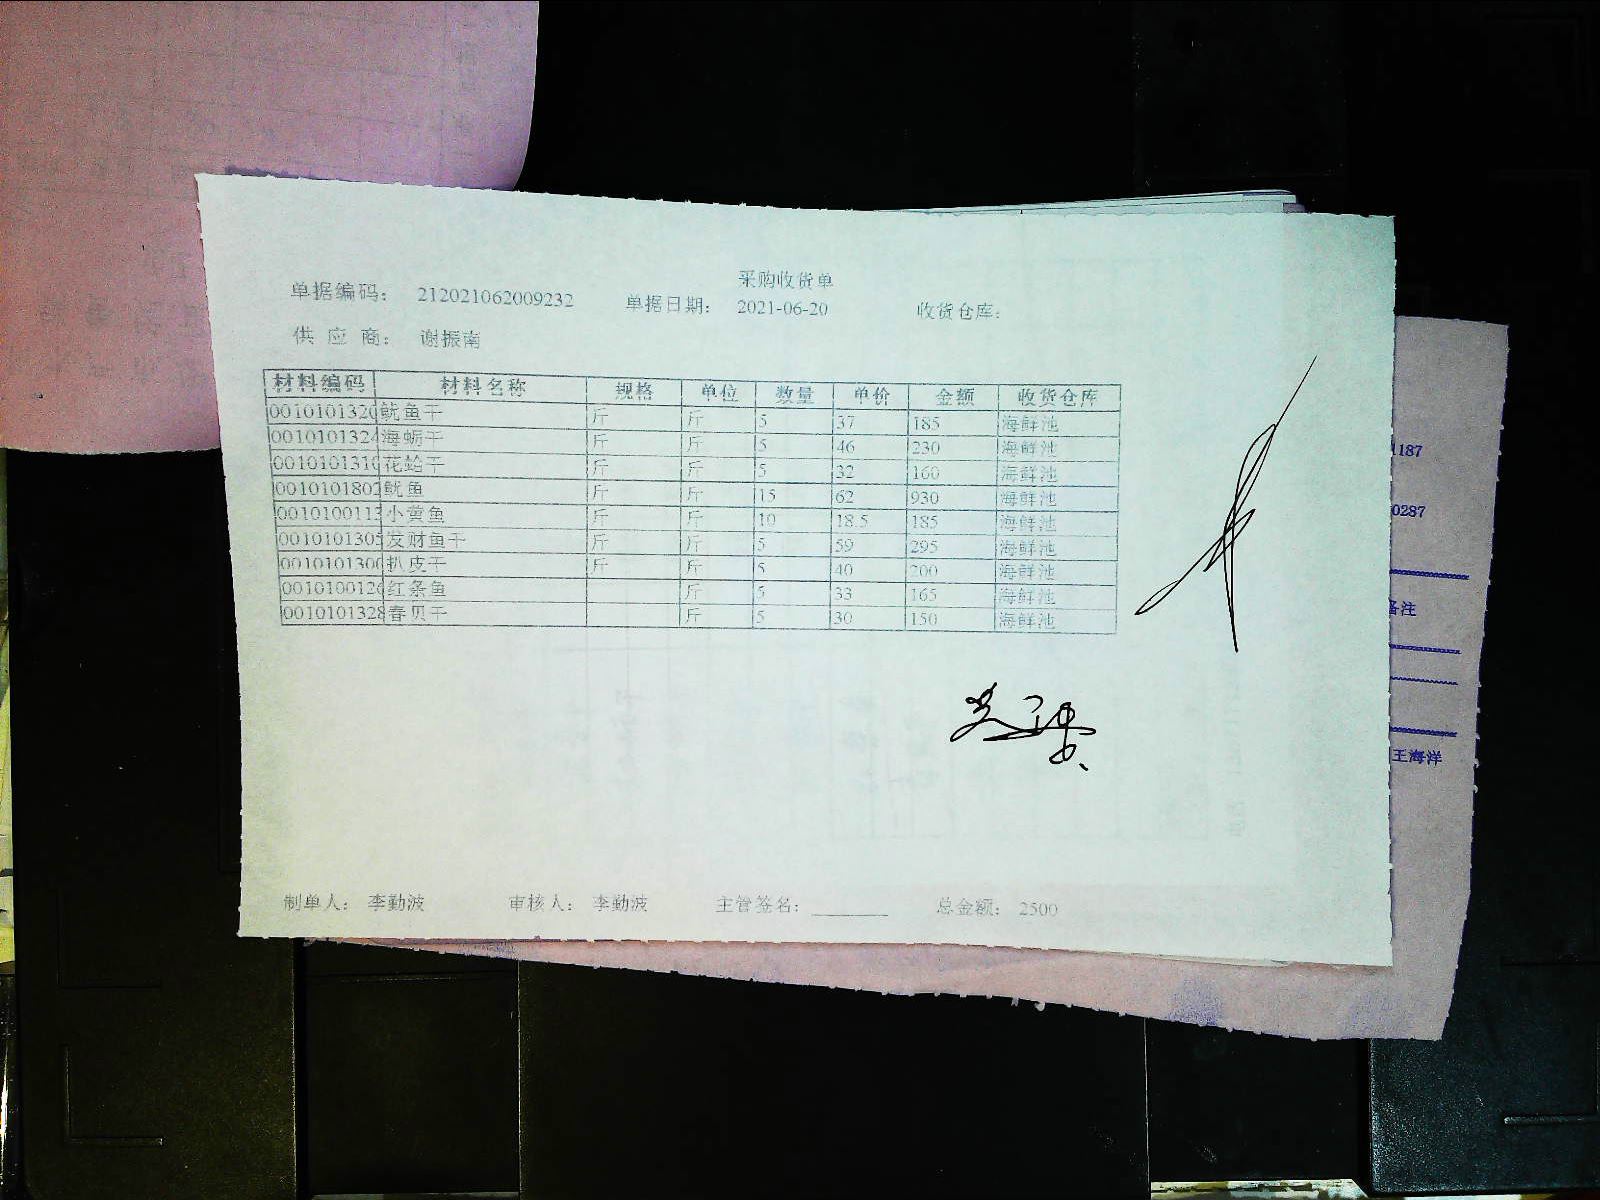 采购收货单
单据编码： 212021062009232 单据日期： 2021-06-20 收货仓库：
供 应 商： 谢振南
材料编码 材料名称 规格 单位 数量 单价 金额 收货仓库
0010101320 鱿鱼干 斤 斤 5 37 185 海鲜池
0010101324 海蛎干 斤 斤 5 46 230 海鲜池
0010101310 花蛤干 斤 斤 5 32 160 海鲜池
0010101802 鱿鱼 斤 斤 15 62 930 海鲜池
0010100113 小黄鱼 斤 斤 10 18.5 185 海鲜池
0010101305 发财鱼干 斤 斤 5 59 295 海鲜池
0010101300 扒皮干 斤 斤 5 40 200 海鲜池
0010100126 红条鱼 斤 5 33 165 海鲜池
0010101328 春贝干 斤 5 30 150 海鲜池
制单人： 李勤波 审核人： 李勤波 主管签名： 总金额： 2500
1187
0287
备注
王海洋